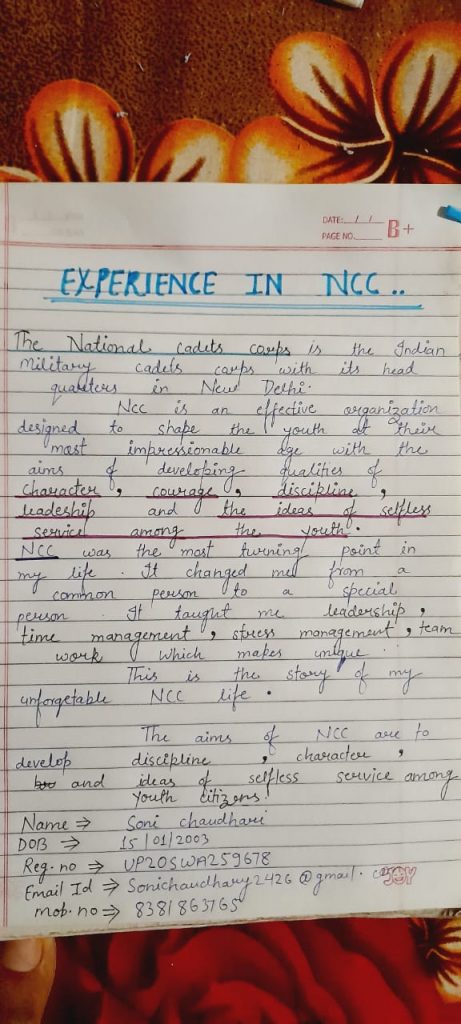 DATE: / /
PAGE NO.
B+
EXPERIENCE IN NCC..
The National cadets corps is the Indian
military cadets corps with its head
quarters in New Delhi.
NCC is an effective organization
designed to shape the youth at their
most impressionable age with the
aims of developing qualities of
character, courage, discipline,
leadership and the ideas of selfless
service among the youth.
NCC was the most turning point in
my life. It changed me from a
common person to a special
person. It taught me leadership,
time management, stress management, team
work which makes unique.
This is the story of my
unforgetable NCC life.
The aims of NCC are to
develop discipline, character,
and ideas of selfless service among
youth citizens!
Name ⇒ Soni chaudhari
DOB ⇒ 15/01/2003
Reg. no ⇒ UP20SWA259678
Email Id ⇒ Sonichaudhary2426@gmail.com
mob. no ⇒ 8381863765
JOY